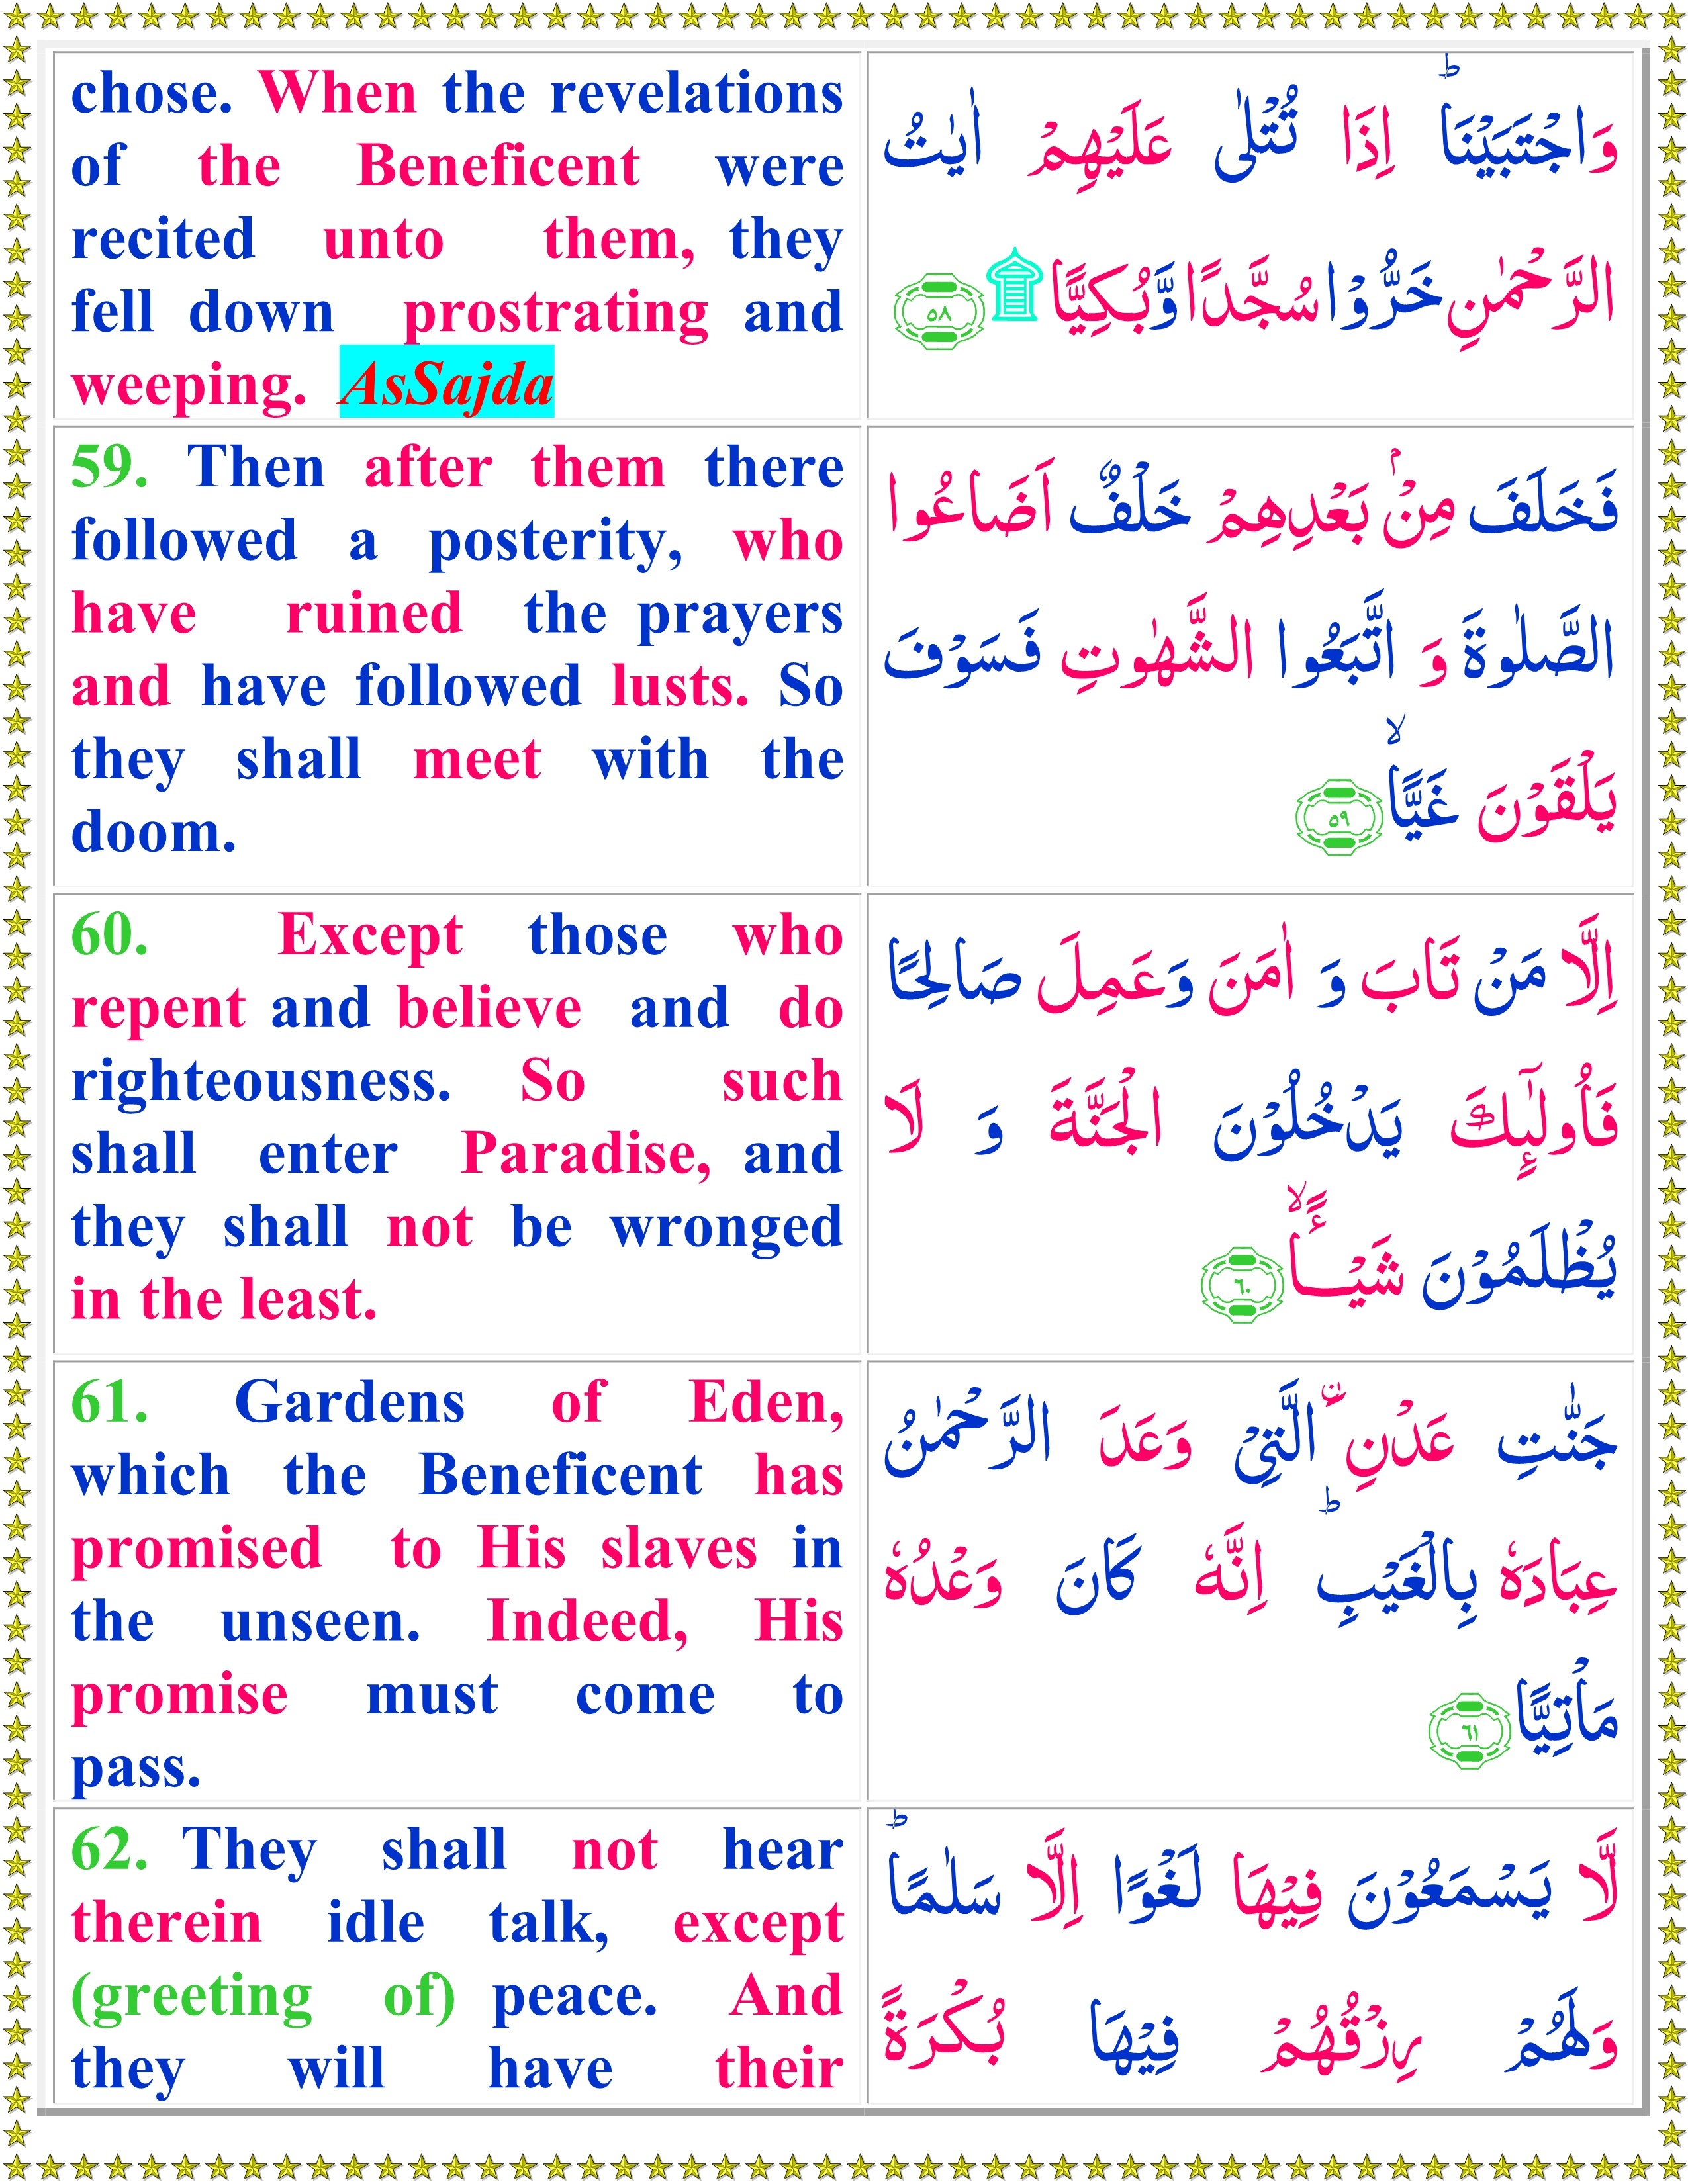 chose. When the revelations
of the Beneficent were
recited unto them, they
fell down prostrating and
weeping. AsSajda
وَاجْتَبَيْنَاؕ اِذَا تُتْلٰى عَلَيْهِمْ اٰيٰتُ
الرَّحْمٰنِ خَرُّوْا سُجَّدًا وَّبُكِيًّا۩ ﴿۵۸﴾
59. Then after them there
followed a posterity, who
have ruined the prayers
and have followed lusts. So
they shall meet with the
doom.
فَخَلَفَ مِنْۢ بَعْدِهِمْ خَلْفٌ اَضَاعُوا
الصَّلٰوةَ وَ اتَّبَعُوا الشَّهٰوتِ فَسَوْفَ
يَلْقَوْنَ غَيًّاۙ ﴿۵۹﴾
60. Except those who
repent and believe and do
righteousness. So such
shall enter Paradise, and
they shall not be wronged
in the least.
اِلَّا مَنْ تَابَ وَ اٰمَنَ وَعَمِلَ صَالِحًا
فَاُولٰٓٮِٕكَ يَدْخُلُوْنَ الْجَنَّةَ وَ لَا
يُظْلَمُوْنَ شَيْــًٔاۙ ﴿۶۰﴾
61. Gardens of Eden,
which the Beneficent has
promised to His slaves in
the unseen. Indeed, His
promise must come to
pass.
جَنّٰتِ عَدْنِ ۨالَّتِىْ وَعَدَ الرَّحْمٰنُ
عِبَادَهٗ بِالْغَيْبِؕ اِنَّهٗ كَانَ وَعْدُهٗ
مَاْتِيًّا ﴿۶۱﴾
62. They shall not hear
therein idle talk, except
(greeting of) peace. And
they will have their
لَّا يَسْمَعُوْنَ فِيْهَا لَغْوًا اِلَّا سَلٰمًاؕ
وَلَهُمْ رِزْقُهُمْ فِيْهَا بُكْرَةً